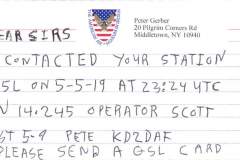 Peter Gerber
20 Pilgrim Corners Rd
Middletown, NY 10940
EAR SIRS
CONTACTED YOUR STATION
SL ON 5-5-19 AT 2324 UTC
N 14.245 OPERATOR SCOTT
ST 5-9 PETE KD2DAF
PLEASE SEND A QSL CARD